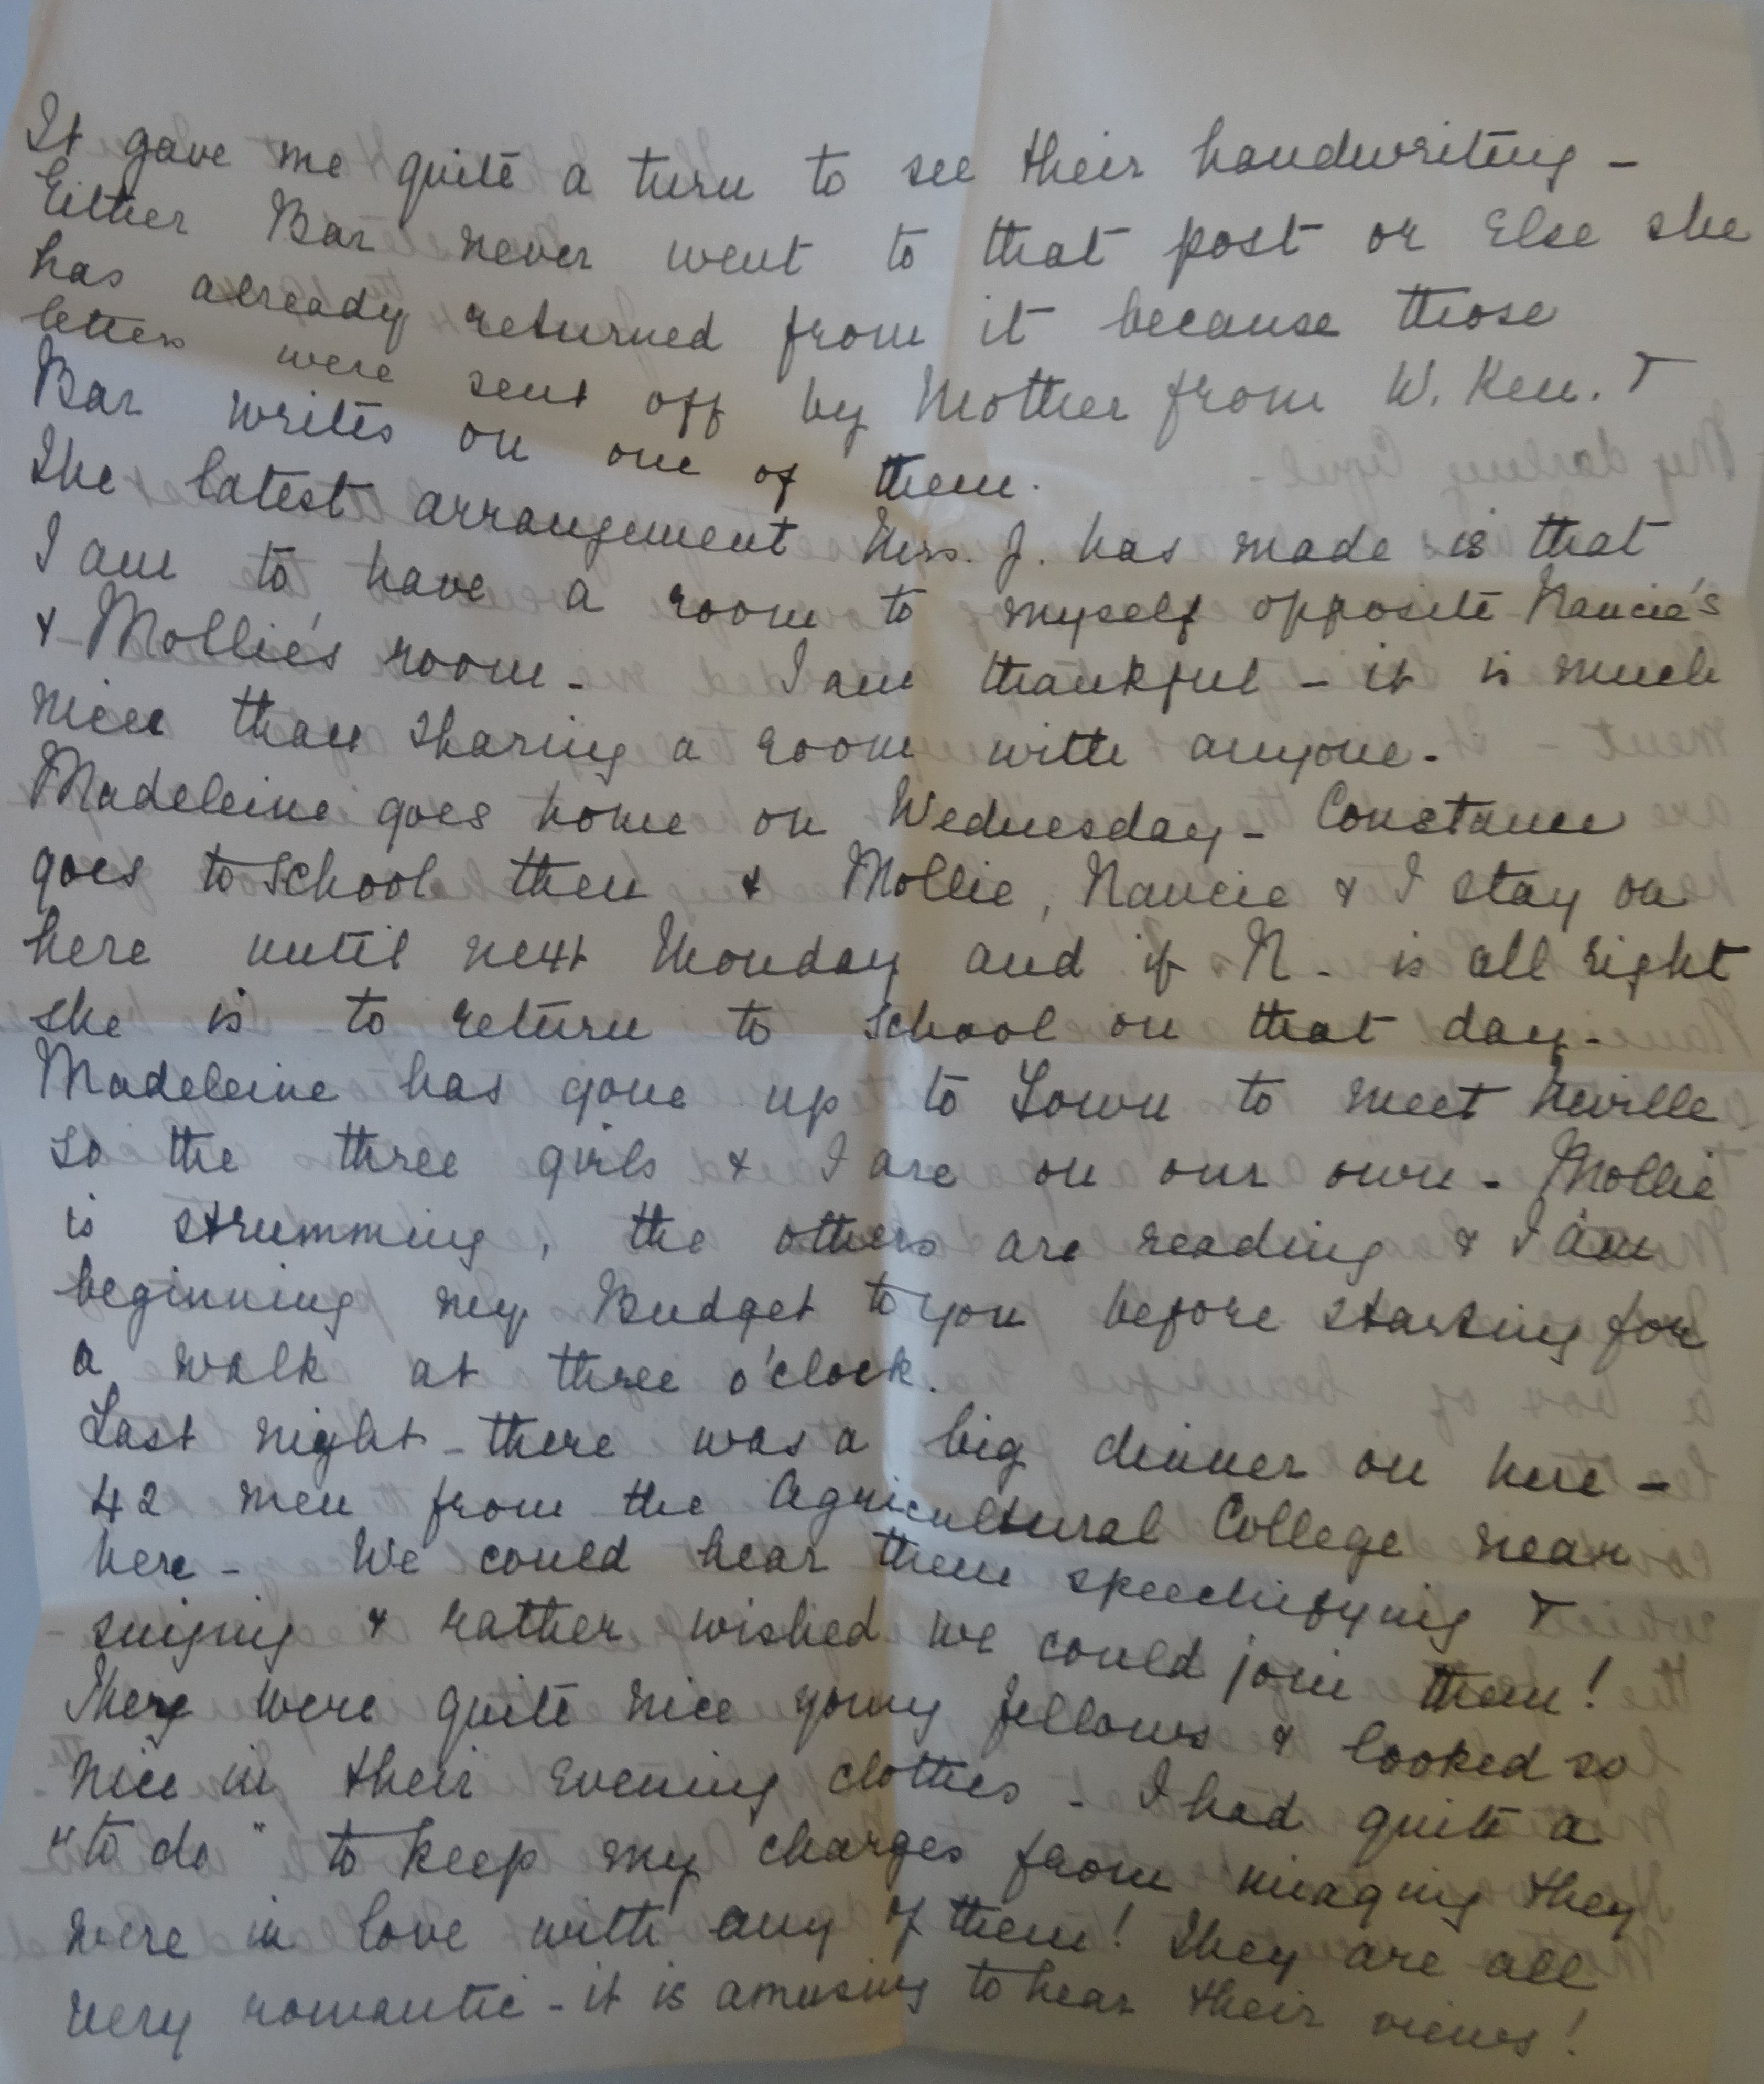 It gave me quite a turn to see their handwriting -
Either Bar never went to that post or else she
has already returned from it because those
letters were sent off by Mother from W. Ken. &
Bar writes on one of them.
The latest arrangement Mrs. J. has made is that
I am to have a room to myself opposite Nancie's
& Mollie's room - I am thankful - it is much
nicer than sharing a room with anyone -
Madeleine goes home on Wednesday - Constance
goes to School then & Mollie, Nancie & I stay on
here until next Monday and if N - is all right
she is to return to School on that day -
Madeleine has gone up to Town to meet Neville
so the three girls & I are on our own - Mollie
is strumming, the others are reading & I am
beginning my Budget to you before starting for
a walk at three o'clock.
Last night - there was a big dinner on here -
42 men from the Agricultural College near
here - We could hear them speechifying &
singing & rather wished we could join them!
They were quite nice young fellows & looked so
nice in their evening clothes - I had quite a
"to do" to keep my charges from they
were in love with any of them! They are all
very romantic - it is amusing to hear their views!